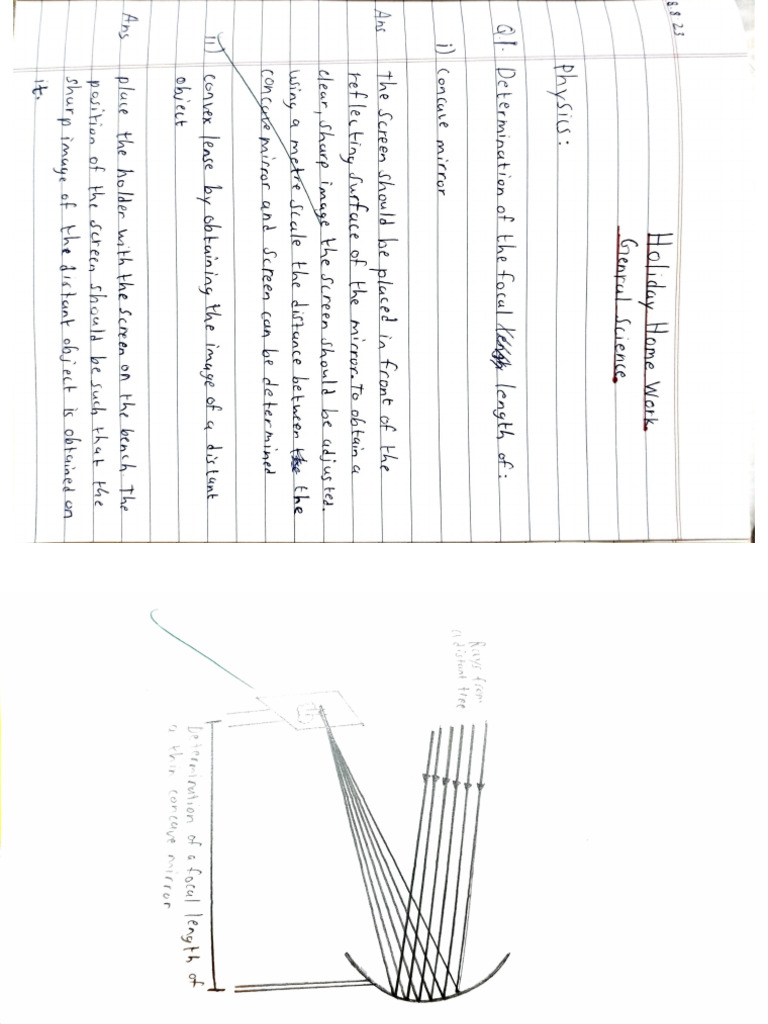 8.8.23
Holiday Home Work
Genral Science.
Physics:
Q1. Determination of the focal length of:
i) Concave mirror
Ans the screen should be placed in front of the
reflecting surface of the mirror. To obtain a
clear, sharp image the screen should be adjusted.
using a metre scale the distance between the
concave mirror and screen can be determined
ii) convex lense by obtaining the image of a distant
object
Ans place the holder with the screen on the bench The
position of the screen should be such that the
sharp image of the distant object is obtained on
it.
Rays from
a distant tree
Determination of a focal length of
a thin concave mirror